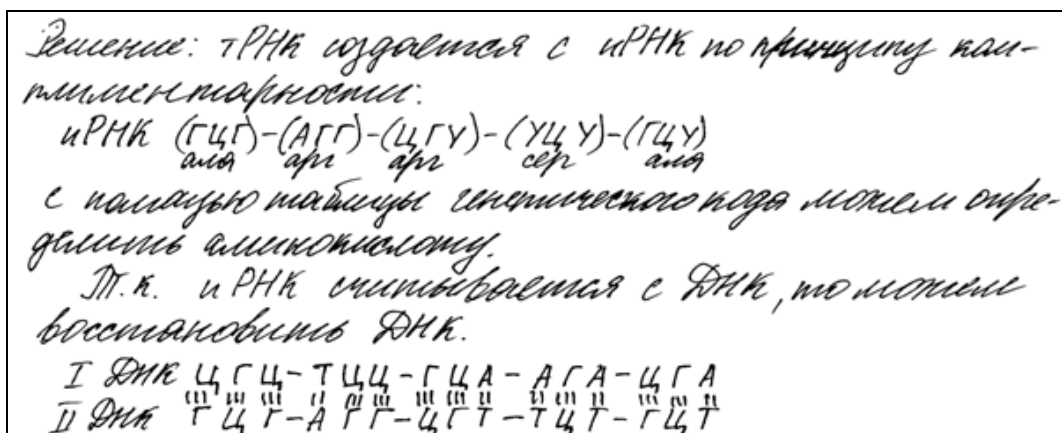 Решение: тРНК создается с иРНК по принципу ком-
плиментарности:
иРНК (ГЦГ)-(АГГ)-(ЦГУ)-(УЦУ)-(ГЦУ)
ала арг арг сер ала
с помощью таблицы генетического кода можем опре-
делить аминокислоту.
Т.к. иРНК считывается с ДНК, то можем
восстановить ДНК.
I ДНК ЦГЦ-ТЦЦ-ГЦА-АГА-ЦГА
II ДНК ГЦГ-АГГ-ЦГТ-ТЦТ-ГЦТ